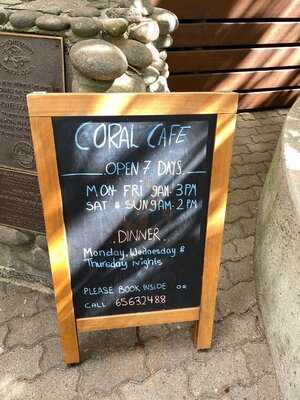 CORAL CAFE
OPEN 7 DAYS.
MON FRI 9AM-3PM
SAT & SUN 9AM-2PM
.DINNER.
Monday, Wednesday &
Thursday Nights
PLEASE BOOK INSIDE OR
CALL 65632488